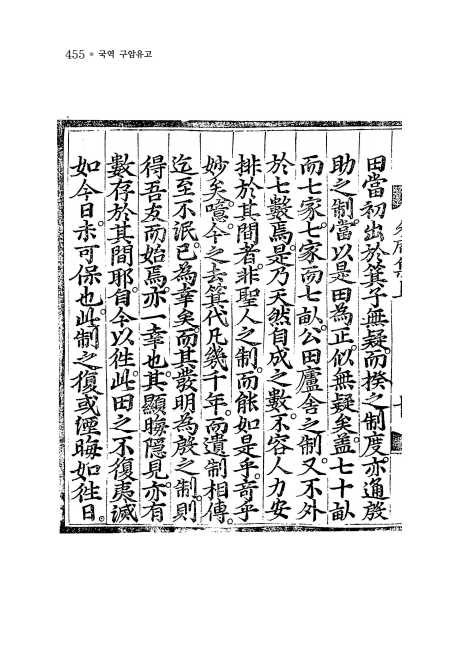 455 ● 국역 구암유고
田當初出於箕子無疑。而揆之制度。亦通殷
助之制。當以是田為正。似無疑矣。盖七十畝
而七家。七家而七畝。公田廬舍之制。又不外
於七數焉。是乃天然自成之數。不容人力安
排於其間者。非聖人之制。而能如是乎。奇乎
妙矣。噫。今之去箕代凡幾千年。而遺制相傳。
迄至不泯。已為幸矣。而其發明為殷之制。則
得吾友而始焉。亦一幸也。其顯晦隱見。亦有
數存於其間耶。自今以徃。此田之不復夷滅
如今日。未可保也。此制之復或堙晦如徃日。